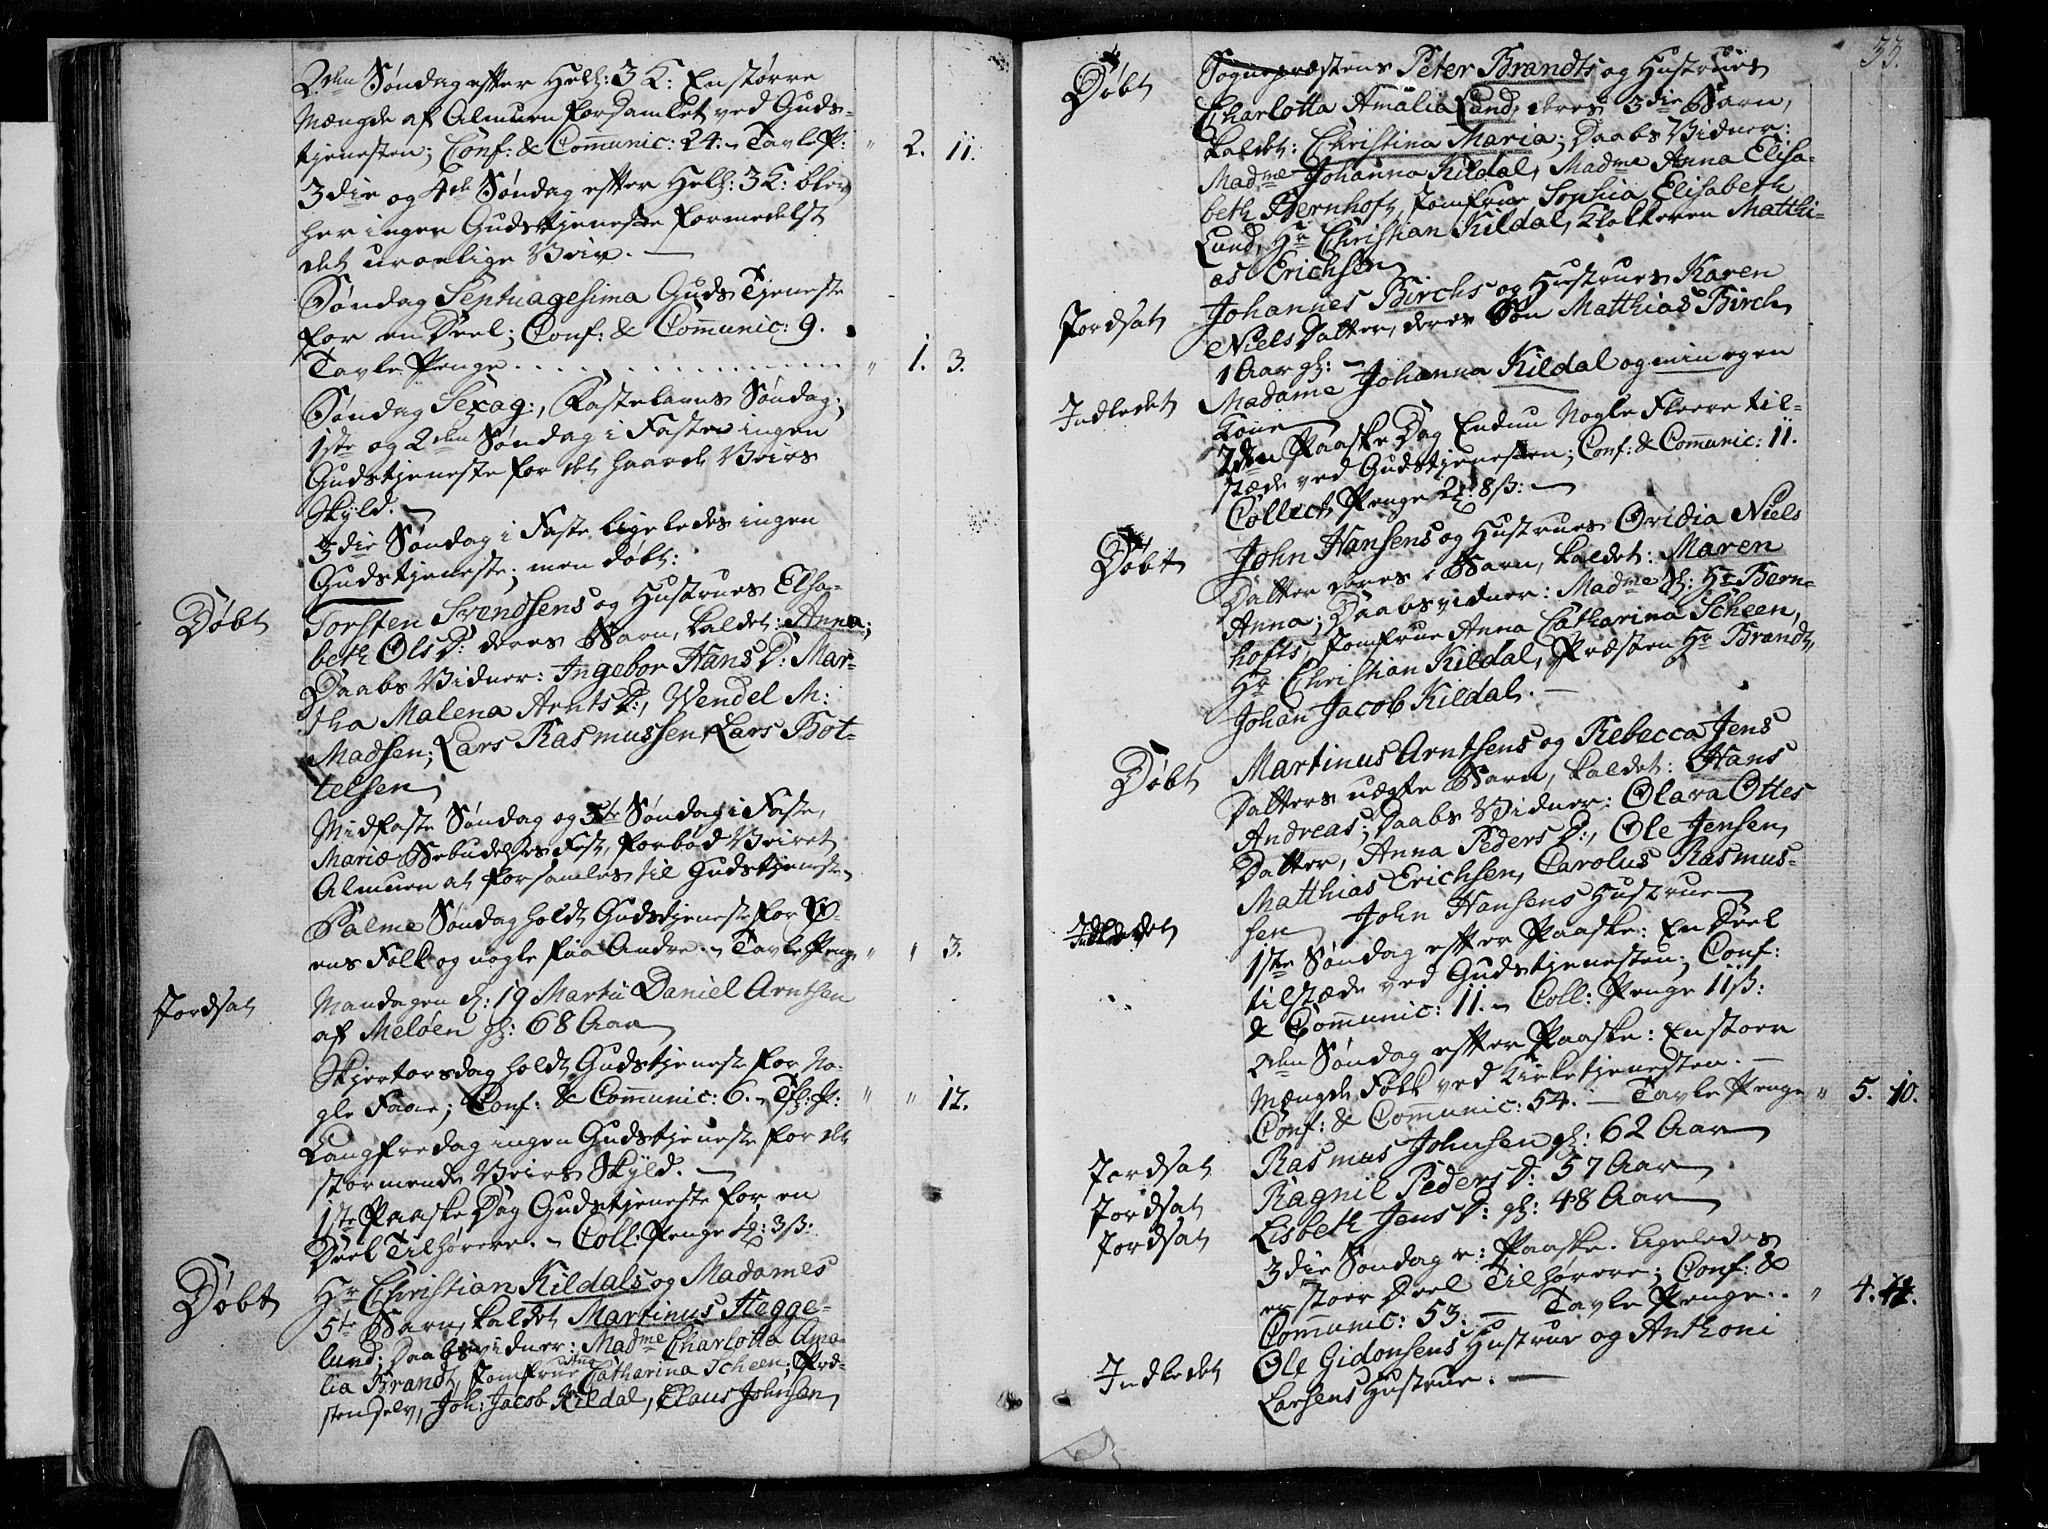 2den Søndag efter Hell: 3 K: En større
Mængde af Almuen forsamlet ved Guds-
tjenesten; Conf: & Com̄unic: 24. Tavle P: " 2. 11.
3die og 4de Søndag efter Hell: 3 K: blev
her ingen Gudstjeneste formedelst
det urolige Veir.
Søndag Septuagesima Guds Tjeneste
for en Deel; Conf: & Com̄unic: 9.
Tavle Penge . . . . " 1. 3.
Søndag Sexag:, Fastelavns Søndag,
1ste og 2den Søndag i Faste ingen
Gudstjeneste for det haarde Veirs
Skyld.
3die Søndag i Faste ligeledes ingen
Gudstjeneste; men døbt:
Døbt Torsten Svendsens og Hustrues Elsa-
beth Ols D: deres Barn, kaldet: Anna;
Daabs Vidner: Ingebor Hans D: Mar-
tha Malena Arnts D:, Wendel M:
Madsen; Lars Rasmussen, Lars Bot-
telsen
Midfaste Søndag og 5te Søndag i Faste,
Mariæ Bebudelses Fest, forbød Veiret
Almuen at forsamles til Gudstjeneste
Palme Søndag holdt Gudstjeneste for Ø-
ens Folk og nogle faa Andre. Tavle Penge " " 3.
Jordsat Mandagen d: 19 Martii Daniel Arntsen
af Meløen gl: 68 Aar
Skjertorsdag holdt Gudstjeneste for No-
gle Faae; Conf: & Com̄unic: 6. Tfl: P: " " 12.
Langfredag ingen Gudstjeneste for det
stormende Veirs Skÿld.
1ste Paaske Dag Gudstjeneste for en
Deel Tilhørere. Coll: Penge 3 ß:
Døbt Hr Christian Kildals og Madames
5te Barn, kaldet Martinus Hegge-
lund; Daabsvidner: Madme Charlotta Ama-
lia Brandt, Jomfrue Anna Catharina Scheen, Præ-
sten selv, Joh: Jacob Kildal, Claus Johnsen
33.
Døbt Sognepræstens Peter Brandts og Hustrues
Charlotta Amalia Lund, deres 3die Barn,
kaldet: Christina Maria; Daabs Vidner:
Madme Johanna Kildal, Madme Anna Elisa-
beth Bernhoft, Jomfrue Sophia Elisabeth
Lund, Hr Christian Kildal, Klokkeren Matthi-
as Erichsen
Jordsat Johannes Birchs og Hustrues Karen
Niels Datter, deres Søn Matthias Birch
1 Aar gl:
Indledet Madame Johanna Kildal og min egen
Kone
2den Paaske Dag Endnu Nogle Fleere til-
stæde ved Gudstjenesten; Conf: & Com̄unic: 11.
Collect Penge 2 8 ß:
Døbt John Hansens og Hustrues Ovidia Niels
Datter deres 1 Barn, kaldet: Maren
Anna; Daabsvidner: Madme Sl: Hr Bern-
hofts, Jomfrue Anna Catharina Scheen,
Hr Christian Kildal, Præsten Hr Brandt,
Johan Jacob Kildal.
Døbt Martinus Arntsens og Rebecca Jens
Datters uægte Barn, kaldet: Hans
Andreas; Daabs Vidner: Olava Ottes
Datter, Anna Peders D:, Ole Jensen,
Matthias Erichsen, Carolus Rasmus-
sen
Indledet John Hansens Hustrue
1ste Søndag efter Paaske: En Deel
tilstæde ved Gudstjenesten; Conf:
& Com̄unic: 11. Coll: Penge 11 ß:
2den Søndag efter Paaske: En stoer
Mængde Folk ved Kirketjenesten.
Conf: & Com̄unic: 54. Tavle Penge " 5. 10.
Jordsat Rasmus Johnsen gl: 62 Aar
Jordsat Ragnil Peders D: 57 Aar
Jordsat Lisbeth Jens D: gl: 48 Aar
3die Søndag e: Paaske. Ligeledes
en stoer Deel Tilhørere; Conf: &
Com̄unic: 53. Tavle Penge. . " 4.
Indledet Ole Gidonsens Hustrue og Anthoni
Larsens Hustrue.